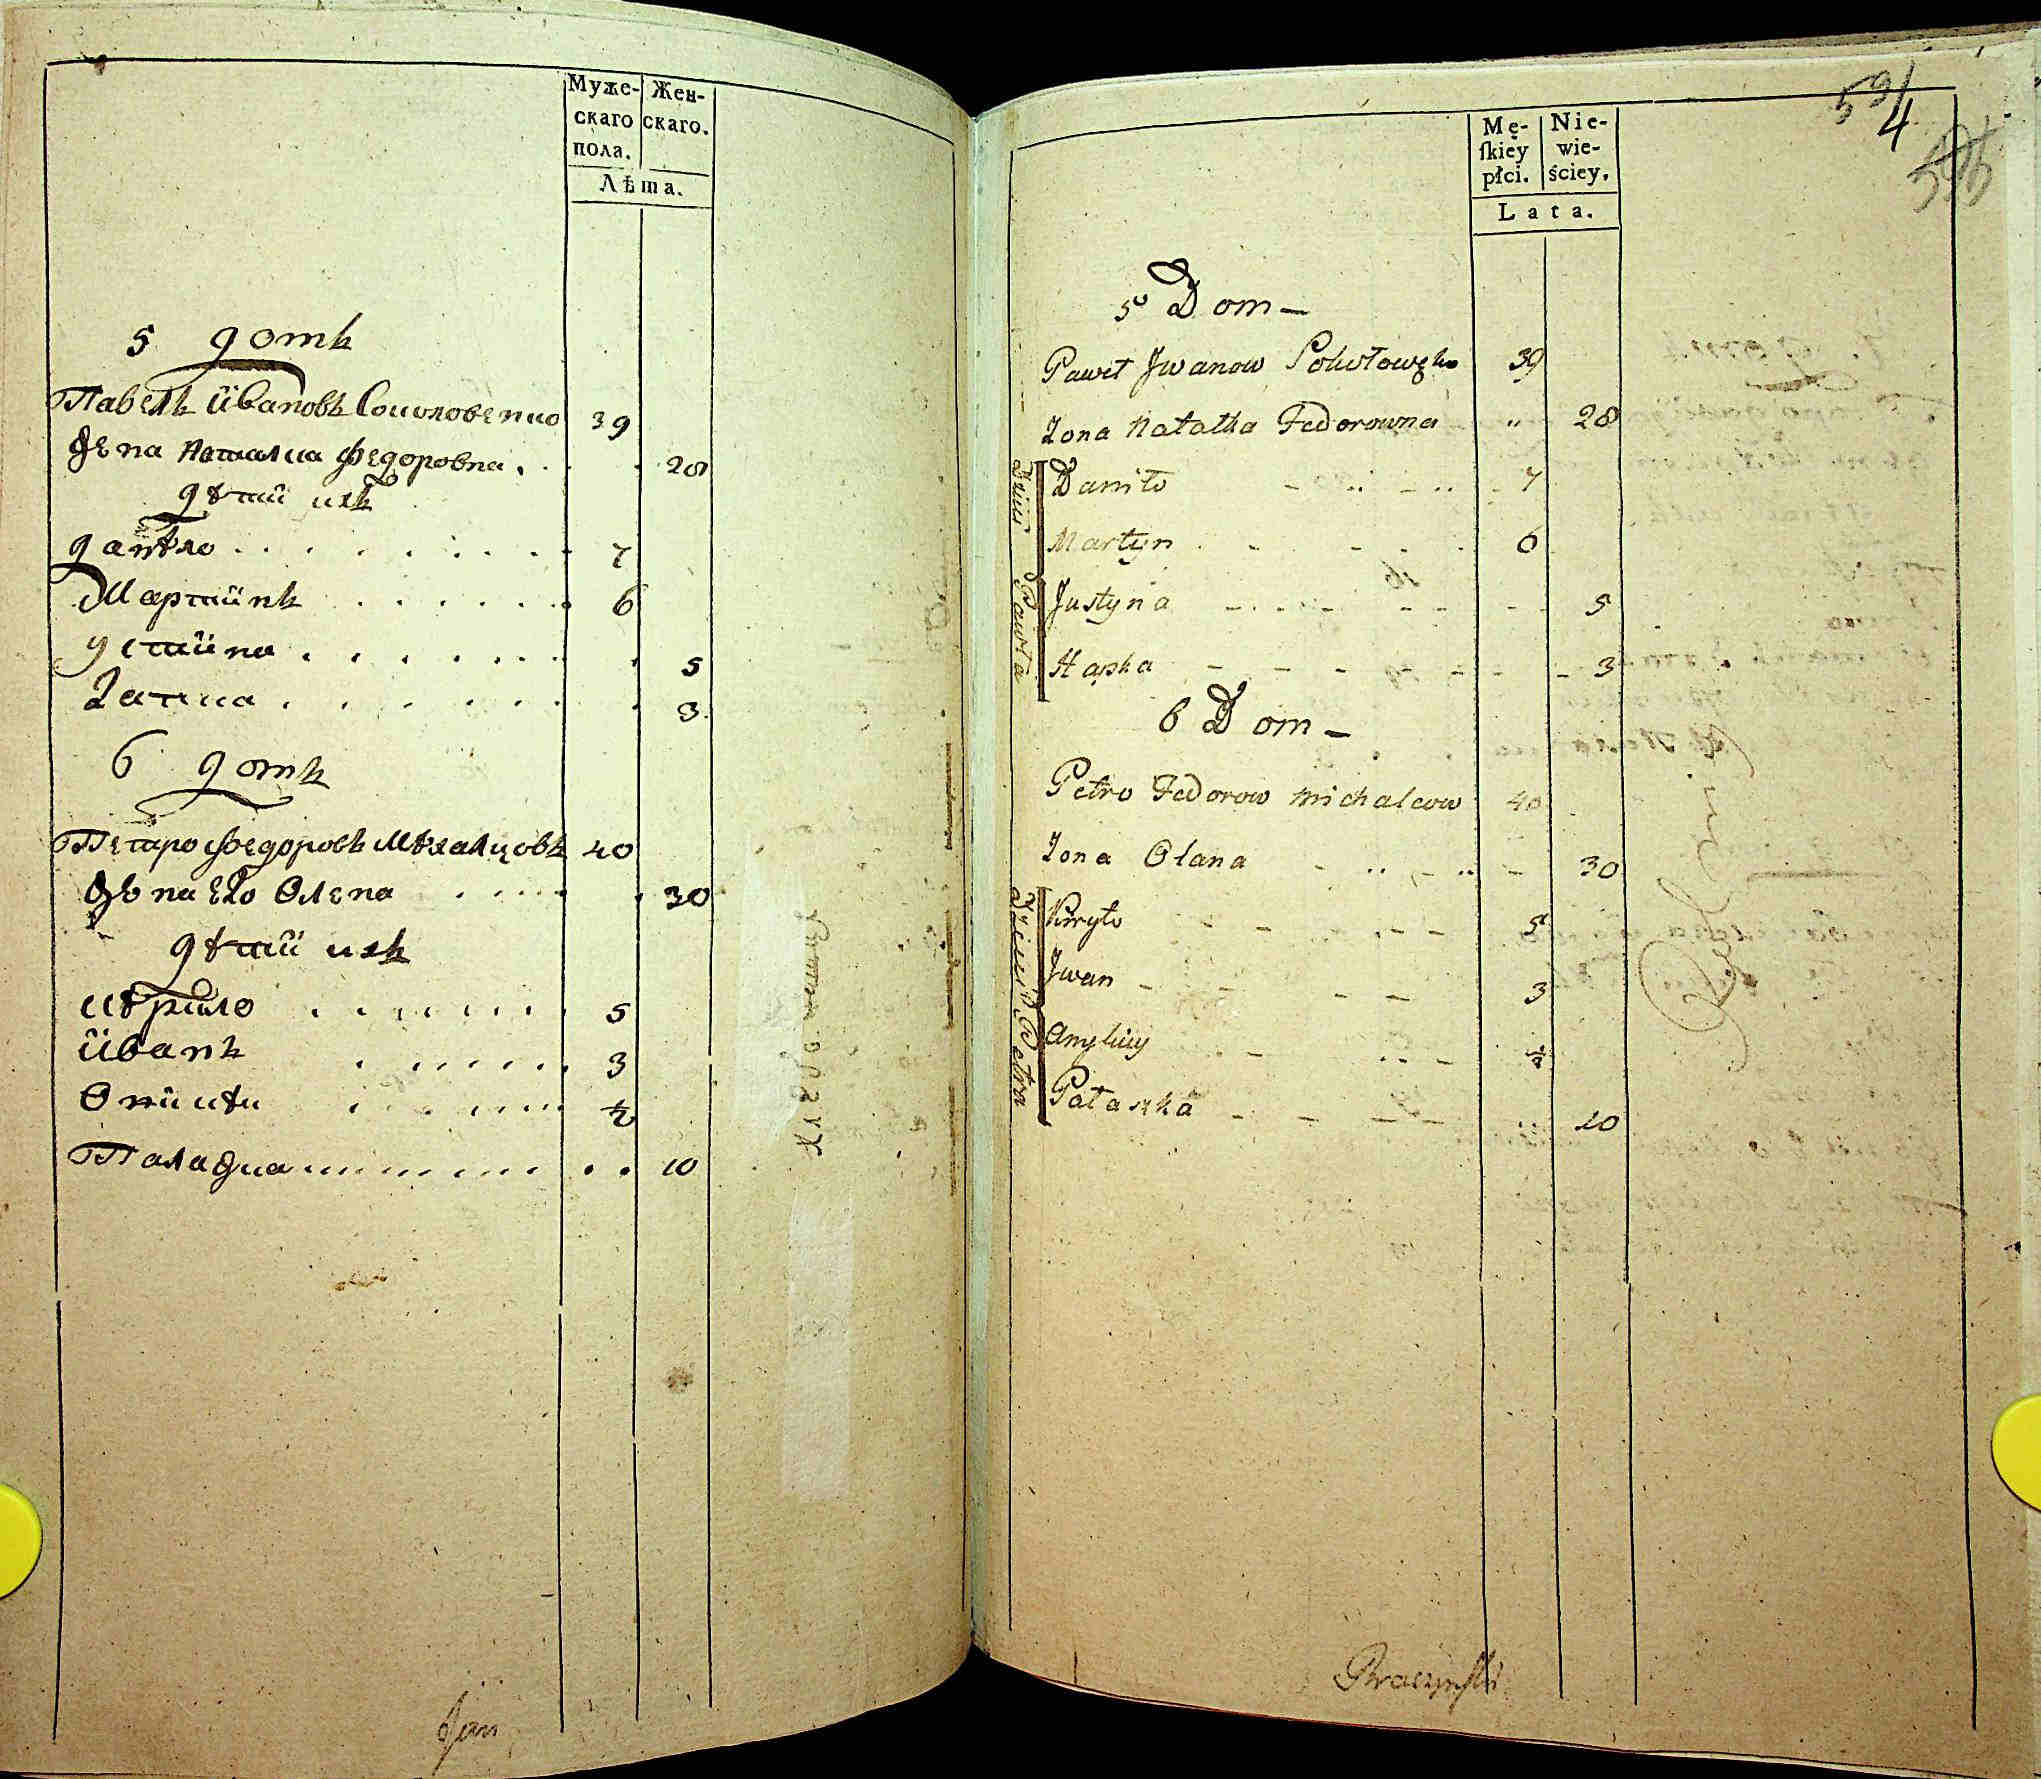 Муже- Жен-
скаго скаго.
пола.
Лѣта.
5 домъ
Павелъ Ивановъ Соколовенко 39
жена Наталка Федоровна . . . 28
дѣти ихъ
данѣло . . . . . . . . . 7
Мартинъ . . . . . . . 6
Устина . . . . . . . . 5
Гапка . . . . . . . . 3
6 домъ
Петро Федоровъ Мѣхалцовъ 40
жена его Олена . . . . . 30
дѣти ихъ
Кѣрило . . . . . . . 5
Иванъ . . . . . . . 3
Оникѣи . . . . . . . ½
Палажка . . . . . . . . . 10
Jan
59/4
Mę- Nie-
ſkiey wie-
płci. ściey.
Lata.
5 Dom –
Paweł Jwanow Sokołowęko 39
Żona Natalka Fedorowna " 28
Dzieci Pawła
Daniło - " - " - 7
Martyn . - - . - . 6
Justyna - . - . - - - - 5
Hapka - - - - - - - 3
6 Dom –
Petro Fedorow Michalcow 40
Żona Olana - " - " - 30
Dzieci Petra
Kiryło - - . - - 5
Jwan - - - - 3
Anykiiy - . . - ½
Pałaszka - - - - " 10
Praczyński